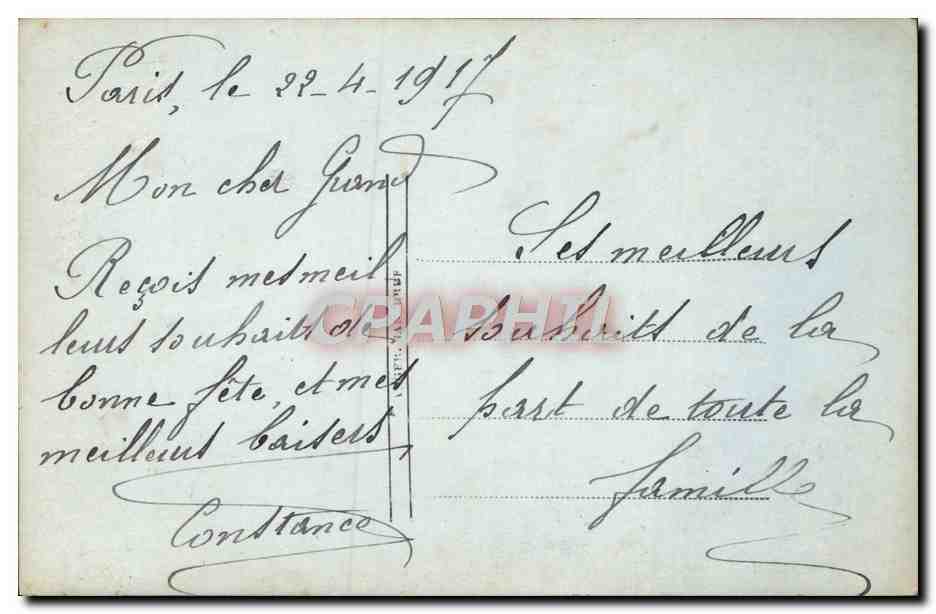 Paris, le 22-4-1917
Mon cher Grand
Reçois mes meil
leurs souhaits de
bonne fête, et mes
meilleurs baisers
Constance
Les meilleurs
souhaits de la
part de toute la
famille
CRAPHTI